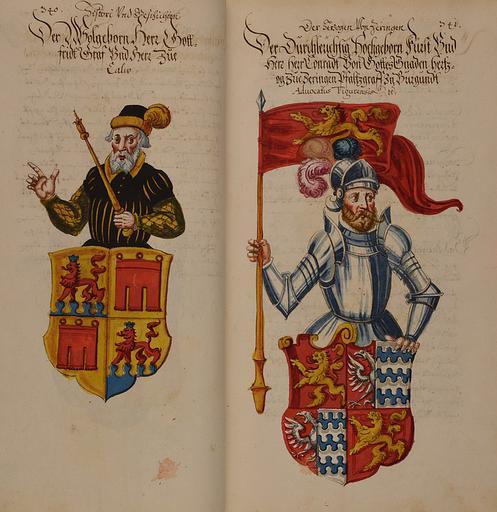 340.
Histori Und Geschichten
Der Wolgeborn Herr Gott-
fridt Graf Und Herr Zue
Calw
Der Herzogen Von Zeringen
341.
Der Durchleuchtig Hochgeborn Fürst Und
Herr Herr Conradt Von Gottes Gnaden Hertz-
og Zue Zeringen Pfaltzgraf Zu Burgundt
Advocatus Tigurensis